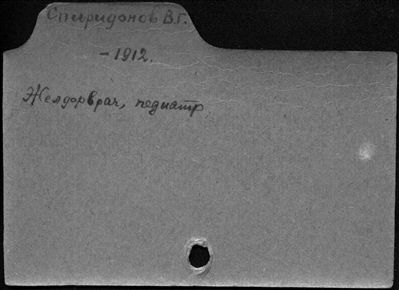 Спиридонов В.Г.
- 1912.
Желдорврач, педиатр.